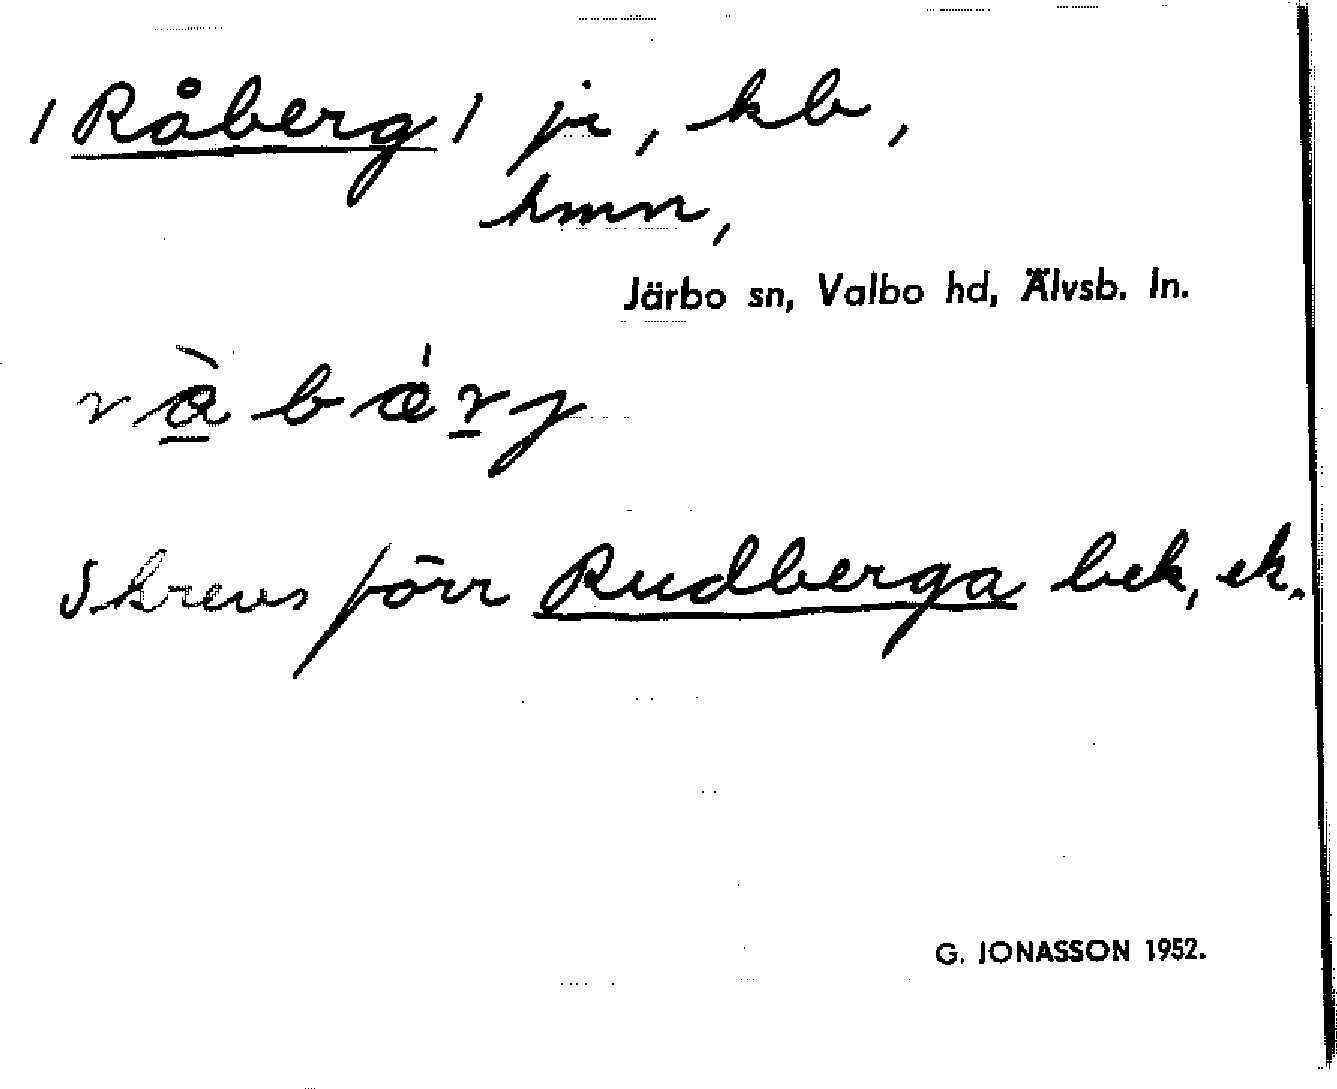 / Råberg / je, kb,
hmn,
Järbo sn, Valbo hd, Älvsb. ln.
rà̲ bǽr̲j
Skrevs förr Rudberga bek, ek.
G. JONASSON 1952.